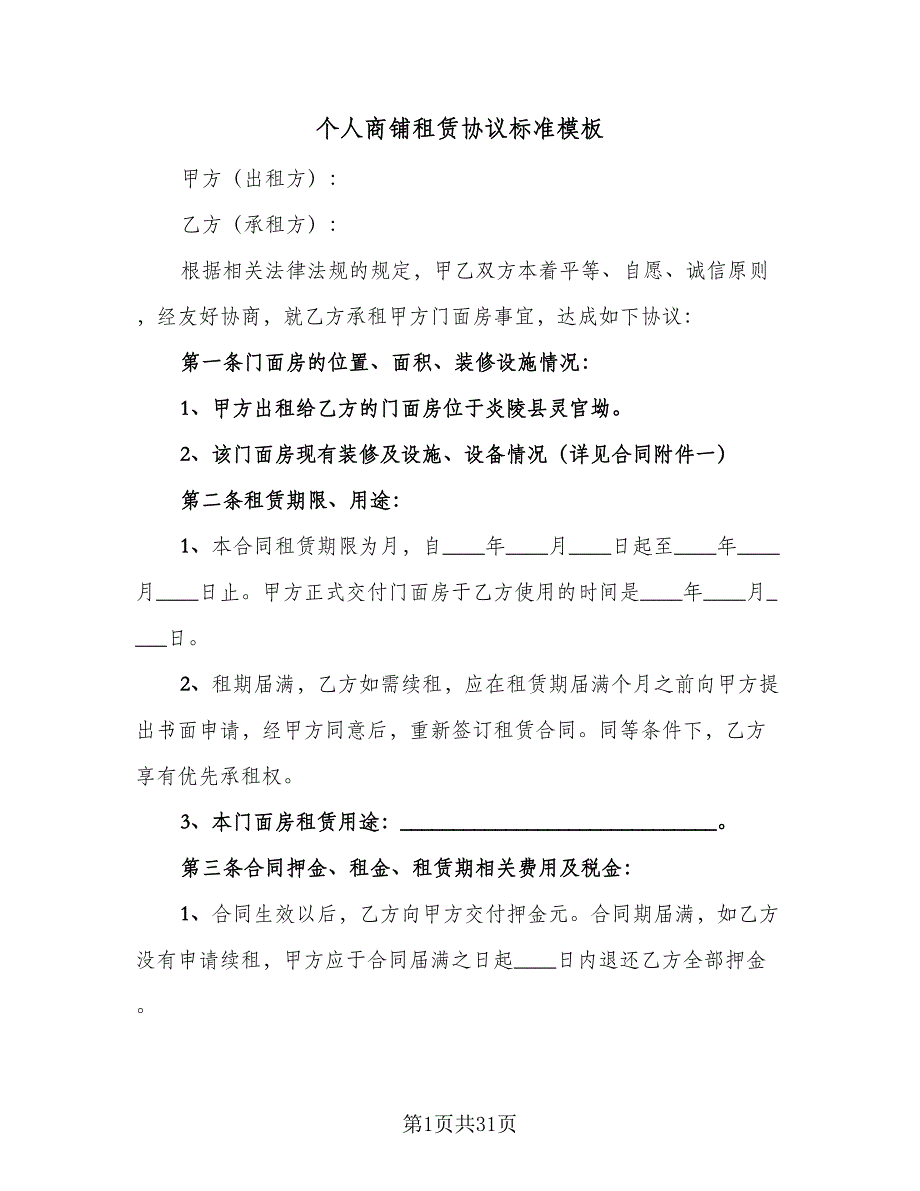 个人商铺租赁协议标准模板
甲方（出租方）：
乙方（承租方）：
根据相关法律法规的规定，甲乙双方本着平等、自愿、诚信原则
，经友好协商，就乙方承租甲方门面房事宜，达成如下协议：
第一条门面房的位置、面积、装修设施情况：
1、甲方出租给乙方的门面房位于炎陵县灵官坳。
2、该门面房现有装修及设施、设备情况（详见合同附件一）
第二条租赁期限、用途：
1、本合同租赁期限为月，自____年____月____日起至____年____
月____日止。甲方正式交付门面房于乙方使用的时间是____年____月_
___日。
2、租期届满，乙方如需续租，应在租赁期届满个月之前向甲方提
出书面申请，经甲方同意后，重新签订租赁合同。同等条件下，乙方
享有优先承租权。
3、本门面房租赁用途：______________________________。
第三条合同押金、租金、租赁期相关费用及税金：
1、合同生效以后，乙方向甲方交付押金元。合同期届满，如乙方
没有申请续租，甲方应于合同届满之日起____日内退还乙方全部押金
。
第1页共31页